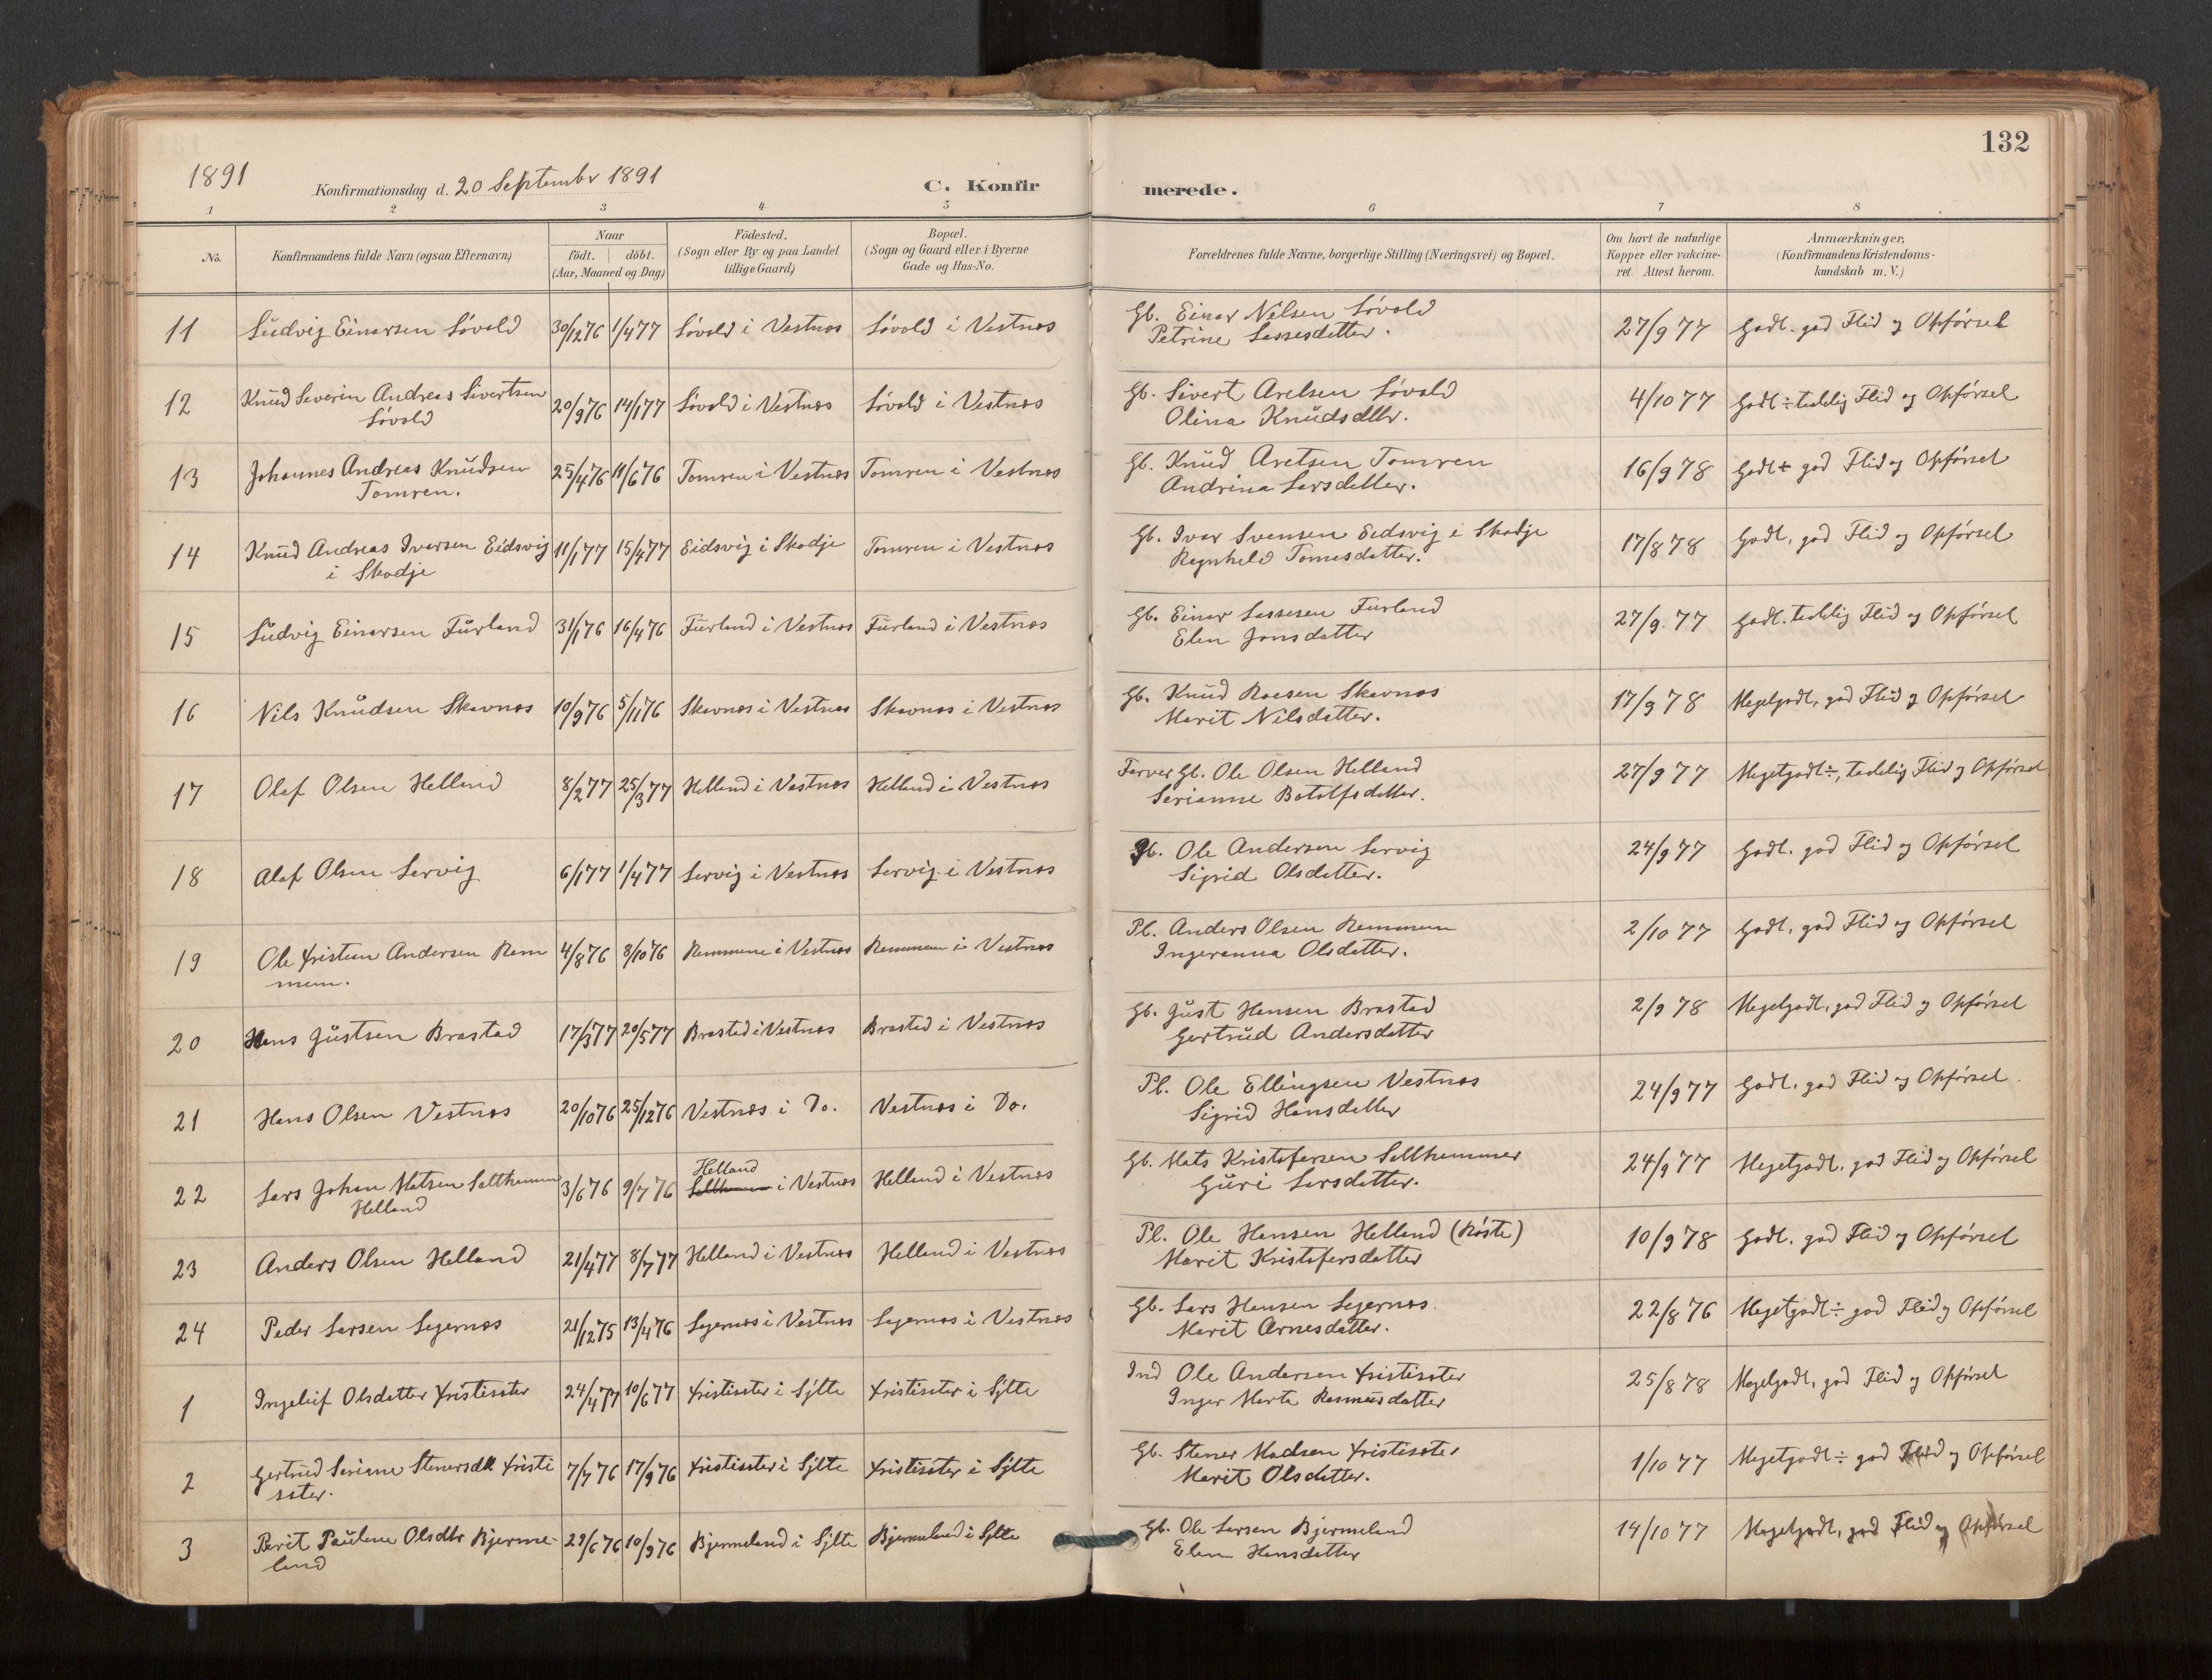 132
1891 Konfirmationsdag d. 20 September 1891 C. Konfirmerede.
1 2 3 4 5 6 7 8
No. Konfirmandens fulde Navn (ogsaa Efternavn) Naar født. døbt. (Aar, Maaned og Dag) Fødested. (Sogn eller By og paa Landet tillige Gaard) Bopæl. (Sogn og Gaard eller i Byerne Gade og Hus-No. Forældrenes fulde Navne, borgerlige Stilling (Næringsvei) og Bopæl. Om havt de naturlige Kopper eller vakcineret. Attest herom. Anmærkninger, (Konfirmandens Kristendomskundskab m. V.)
11 Ludvig Einarsen Løvold 30/12 76 1/4 77 Løvold i Vestnæs Løvold i Vestnæs Gb. Einar Nilsen Løvold 27/9 77 Godt. god Flid og Opførsel
Petrine Lassesdatter.
12 Knud Severin Andreas Sivertsen 20/9 76 14/1 77 Løvold i Vestnæs Løvold i Vestnæs Gb. Sivert Arelsen Løvold 4/10 77 Godt ÷ tadelig Flid og Opførsel
Løvold Olina Knudsdtlr.
13 Johannes Andreas Knudsen 25/4 76 11/6 76 Tomren i Vestnæs Tomren i Vestnæs Gb. Knud Aretsen Tomren 16/9 78 Godt + god Flid og Opførsel
Tomren. Andrina Larsdatter.
14 Knud Andreas Iversen Eidsvig 11/1 77 15/4 77 Eidsvig i Skodje Tomren i Vestnæs Gb. Iver Svensen Eidsvig i Skodje 17/8 78 Godt, god Flid og Opførsel
i Skodje Ragnheld Tomasdatter.
15 Ludvig Einarsen Furland 31/1 76 16/4 76 Furland i Vestnæs Furland i Vestnæs Gb. Einar Lassesen Furland 27/9. 77 Godt. tadelig Flid og Opførsel
Elen Jonsdatter
16 Nils Knudsen Skavnæs 10/9 76 5/11 76 Skavnæs i Vestnæs Skavnæs i Vestnæs Gb. Knud Roesen Skavnæs 17/9 78 Megetgodt, god Flid og Opførsel
Marit Nilsdatter.
17 Olaf Olsen Helland 8/2 77 25/3 77 Helland i Vestnæs Helland i Vestnæs Farver Gb. Ole Olsen Helland 27/9 77 Megetgodt ÷, tadelig Flid og Opførsel
Serianne Botolfsdatter.
18 Olaf Olsen Lervig 6/1 77 1/4 77 Lervig i Vestnæs Lervig i Vestnæs Gb. Ole Andersen Lervig 24/9 77 Godt. god Flid og Opførsel
Sigrid Olsdatter.
19 Ole Kristen Andersen Rem 4/8 76 8/10 76 Remmem i Vestnæs Remmem i Vestnæs Pl. Anders Olsen Remmem 2/10 77 Godt, god Flid og Opførsel
mem. Ingeranna Olsdatter.
20 Hans Justsen Brastad 17/3 77 20/5 77 Brastad i Vestnæs Brastad i Vestnæs Gb. Just Hansen Brastad 2/9 78 Megetgodt, god Flid og Opførsel
Gertrud Andersdatter
21 Hans Olsen Vestnæs 20/10 76 25/12 76 Vestnæs i Do. Vestnæs i Do. Pl. Ole Ellingsen Vestnæs 24/9 77 Godt. god Flid og Opførsel
Sigrid Hansdatter
Helland
22 Lars Johan Matsen Salthammer 3/6 76 9/7 76 i Vestnæs Helland i Vestnæs Gb. Mats Kristofersen Salthammer 24/9 77 Megetgodt, god Flid og Opførsel
Helland Guri Larsdatter.
23 Anders Olsen Helland 21/4 77 8/7 77 Helland i Vestnæs Helland i Vestnæs Pl. Ole Hansen Helland (Røste) 10/9 78 Godt. god Flid og Opførsel
Marit Kristofersdatter
24 Peder Larsen Legernæs 21/12 75 13/4 76 Legernæs i Vestnæs Legernæs i Vestnæs Gb. Lars Hansen Legernæs 22/8 76 Megetgodt ÷ god Flid og Opførsel
Marit Arnesdatter.
1 Ingeleif Olsdatter Kristisæter 24/4 77 10/6 77 Kristisæter i Sylte Kristisæter i Sylte Ind Ole Andersen Kristisæter 25/8 78 Megetgodt, god Flid og Opførsel
Inger Marta Rasmusdatter
2 Gertrud Seriane Stenersdtt Kristi 7/7 76 17/9 76 Kristisæter i Sylte Kristisæter i Sylte Gb. Stener Madsen Kristisæter 1/10 77 Megetgodt ÷ god Flid og Opførsel
sæter. Marit Olsdatter.
3 Berit Pauline Olsdtr Bjerme- 29/6 76 10/9 76 Bjermeland i Sylte Bjermeland i Sylte Gb. Ole Larsen Bjermeland 14/10 77 Megetgodt, god Flid og Opførsel
land Elen Hansdatter